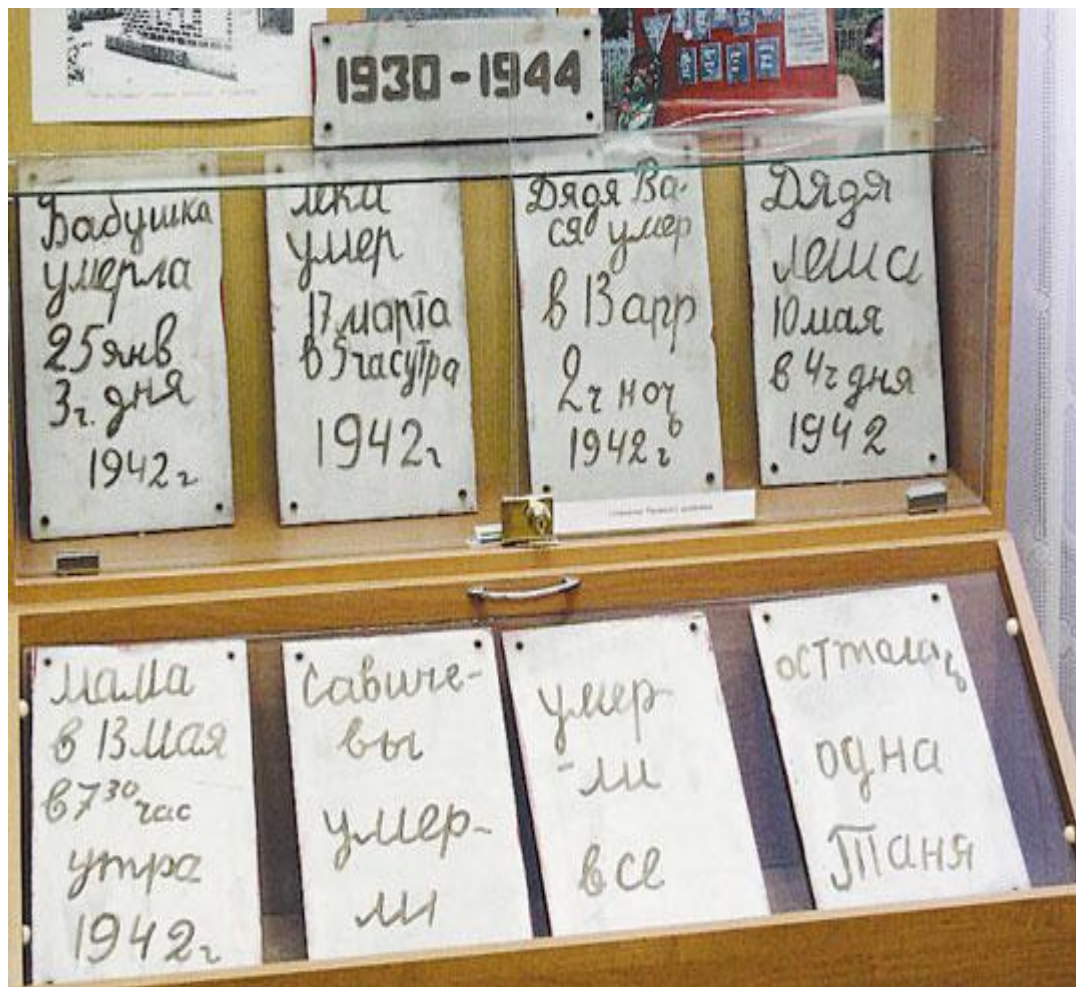 1930-1944
Бабушка
умерла
25 янв
3ч. дня
1942г
Лека
умер
17 марта
в 5 час утра
1942г
Дядя Ва-
ся умер
в 13 апр
2ч ночь
1942г
Дядя
Леша
10 мая
в 4ч дня
1942
Мама
в 13 мая
в 7 30 час
утра
1942г
Савиче-
вы
умер-
ли
умер-
-ли
все
осталась
одна
Таня